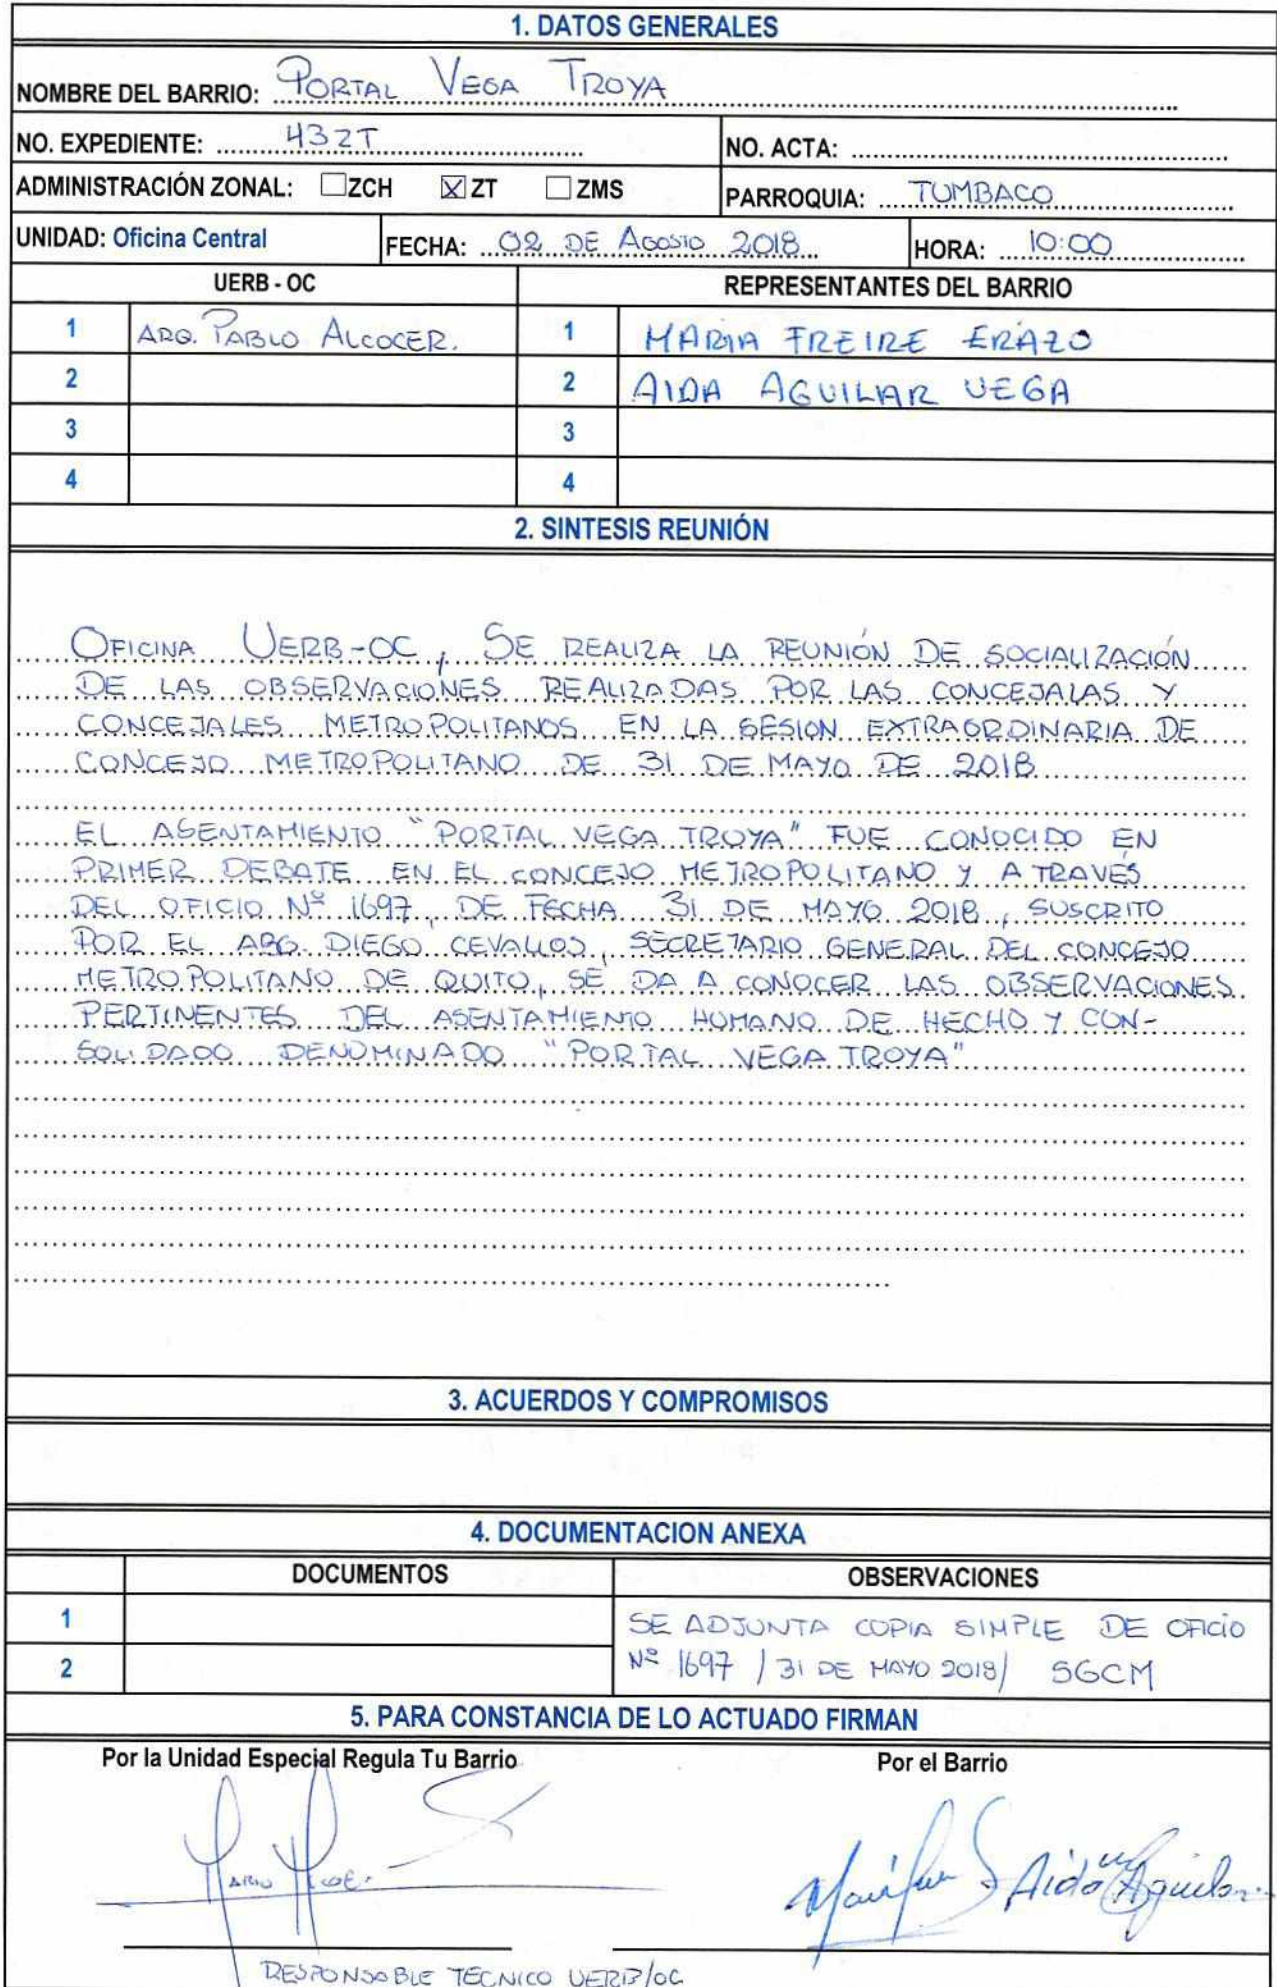 1. DATOS GENERALES
NOMBRE DEL BARRIO: PORTAL VEGA TROYA
NO. EXPEDIENTE: 432T NO. ACTA:
ADMINISTRACIÓN ZONAL: ☐ZCH ☒ZT ☐ZMS PARROQUIA: TUMBACO
UNIDAD: Oficina Central FECHA: 02 DE AGOSTO 2018 HORA: 10:00
UERB - OC REPRESENTANTES DEL BARRIO
1 ARQ. PABLO ALCOCER. 1 MARIA FREIRE ERAZO
2 2 AIDA AGUILAR VEGA
3 3
4 4
2. SINTESIS REUNIÓN
OFICINA UERB-OC, SE REALIZA LA REUNIÓN DE SOCIALIZACIÓN
DE LAS OBSERVACIONES REALIZADAS POR LAS CONCEJALAS Y
CONCEJALES METROPOLITANOS EN LA SESION EXTRAORDINARIA DE
CONCEJO METROPOLITANO DE 31 DE MAYO DE 2018
EL ASENTAMIENTO "PORTAL VEGA TROYA" FUE CONOCIDO EN
PRIMER DEBATE EN EL CONCEJO METROPOLITANO Y A TRAVÉS
DEL OFICIO Nº 1697, DE FECHA 31 DE MAYO 2018, SUSCRITO
POR EL ABG. DIEGO CEVALLOS, SECRETARIO GENERAL DEL CONCEJO
METROPOLITANO DE QUITO, SE DA A CONOCER LAS OBSERVACIONES
PERTINENTES DEL ASENTAMIENTO HUMANO DE HECHO Y CON-
SOLIDADO DENOMINADO "PORTAL VEGA TROYA"
3. ACUERDOS Y COMPROMISOS
4. DOCUMENTACION ANEXA
DOCUMENTOS OBSERVACIONES
1 SE ADJUNTA COPIA SIMPLE DE OFICIO
2 Nº 1697 / 31 DE MAYO 2018/ SGCM
5. PARA CONSTANCIA DE LO ACTUADO FIRMAN
Por la Unidad Especial Regula Tu Barrio Por el Barrio
Aida Aguilar
RESPONSABLE TECNICO UERB/OC